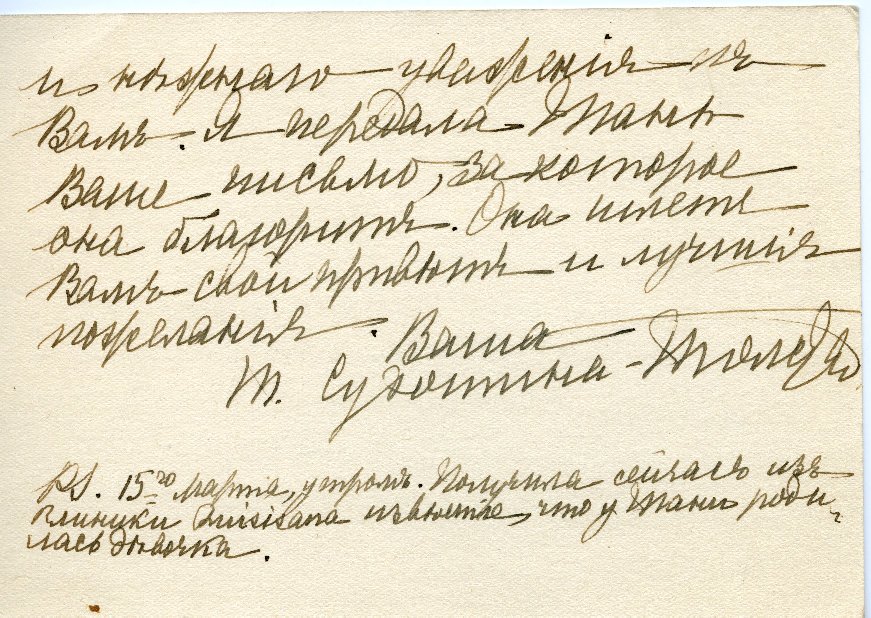 и нѣжнаго уваженія къ
Вамъ. Я передала Танѣ
Ваше письмо, за которое
она благодритъ. Она шлетъ
Вамъ свой привѣтъ и лучшія
пожеланія. Ваша
Т. Сухотина-Толстая
PS. 15го марта, утромъ. Получила сейчасъ изъ
клиники Quisisana извѣстіе, что у Тани роди-
лась дѣвочка.